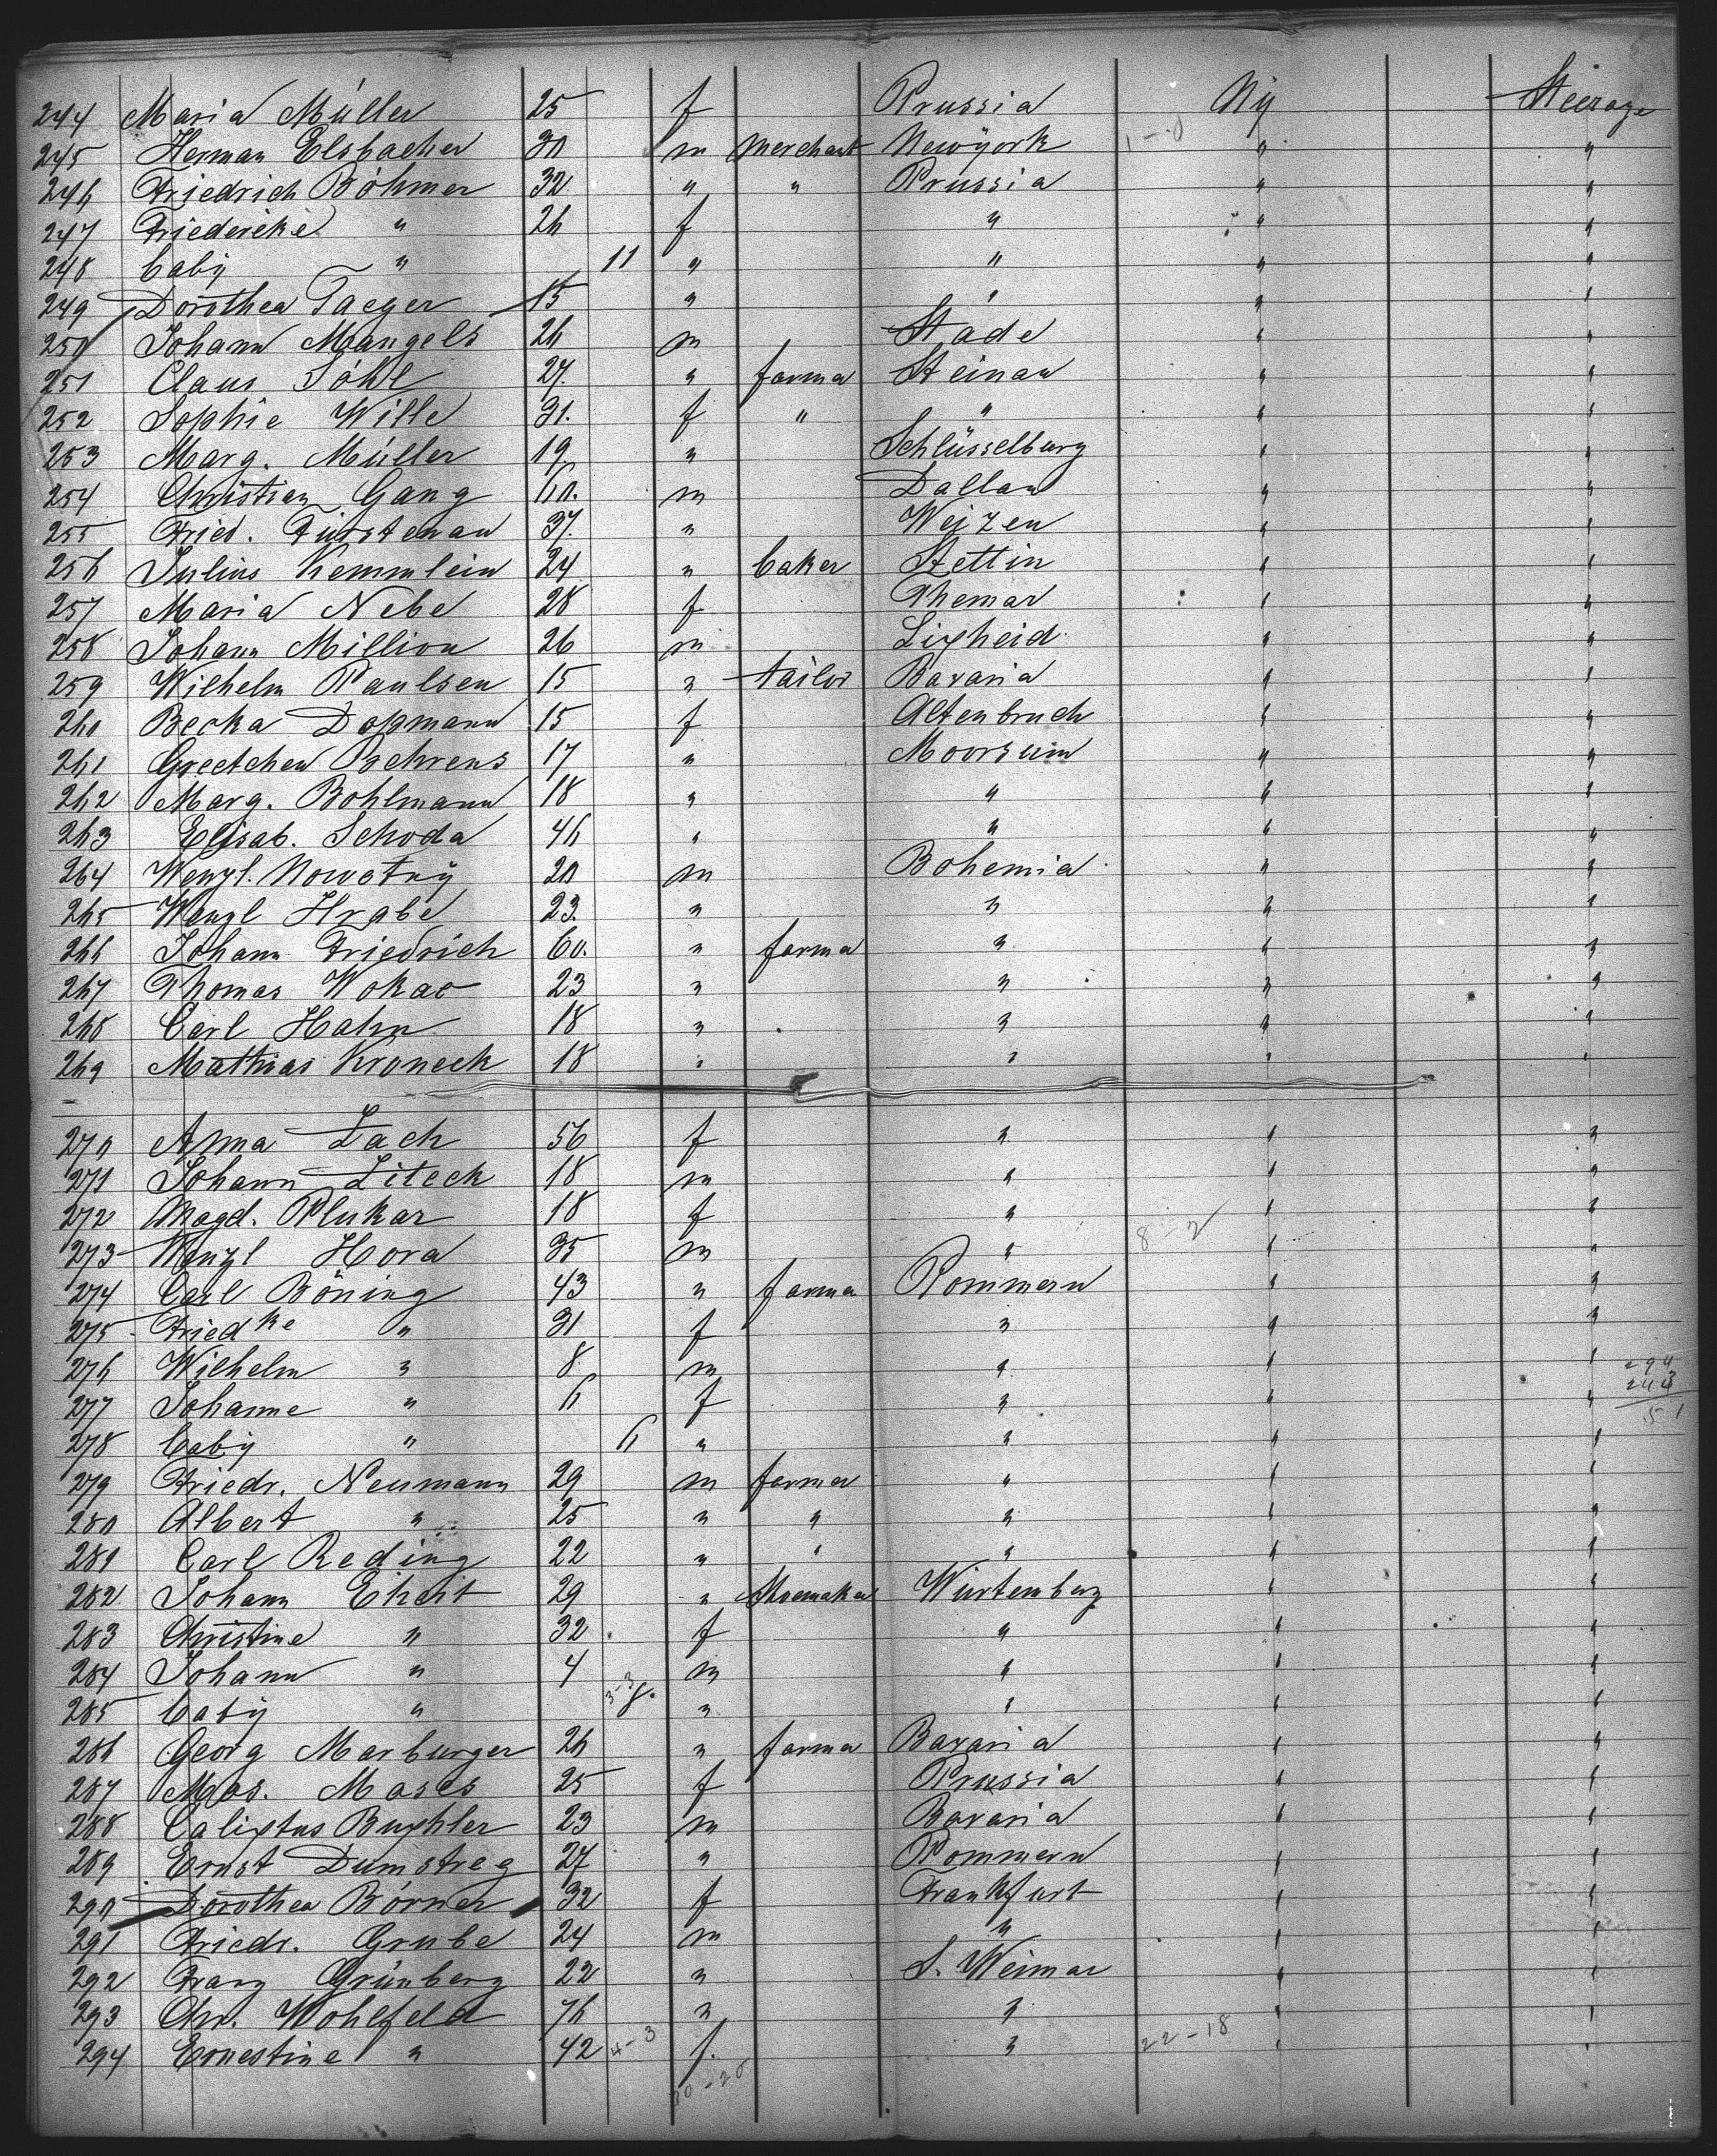 244 Maria Müller 25 f Prussia Ny Steerage
245 Herman Elsbacher 30 m merchant Newyork 1-0 " "
246 Friedrich Böhmer 32 " " Prussia " "
247 Friedereke " 26 f " " "
248 baby " 11 " " " "
249 Dorothea Jaeger 15 " " " "
250 Johann Mangels 26 m Stade " "
251 Claus Söhl 27. " farma Steinau " "
252 Sophie Wille 31. f " " " "
253 Marg. Müller 19 " Schlüsselburg " "
254 Christian Gang 60. m Dallau " "
255 Fried. Fürstenau 37. " Weizen " "
256 Julius Kemmlein 24 " baker Stettin " "
257 Maria Nebe 28 f Themar " "
258 Johann Million 26 m Lixheid " "
259 Wilhelm Paulsen 15 " tailor Bavaria " "
260 Becka Dopmann 15 f Altenbruch " "
261 Greetchen Behrens 17 " Moorsum " "
262 Marg. Bohlmann 18 " " " "
263 Elisab. Schoda 46 " " " "
264 Wenzl. Nowotny 20 m Bohemia " "
265 Wenzl Hrabe 23. " " " "
266 Johann Friedrich 60. " farma " " "
267 Thomas Wokac 23 " " " "
268 Carl Hahn 18 " " " "
269 Mathias Kroneck 18 " " " "
270 Anna Zach 56 f " " "
271 Johann Liteck 18 m " " "
272 Magd. Plukar 18 f " " "
273 Wenzl Hora 35 m " 8-2 " "
274 Carl Böning 43 " farma Pommern " "
275 Friedke " 31 f " " "
276 Wilhelm " 8 m " " "
294
244
51
277 Johanne " 6 f " " "
278 baby " 6 " " " "
279 Friedr. Neumann 29 m farma " " "
280 Albert " 25 " " " " "
281 Carl Reding 22 " " " " "
282 Johann Eheit 29 " Shoemaker Würtemberg " "
283 Christine " 32 f " " "
284 Johann " 4 m " " "
285 baby " 3-3 8. " " " "
286 Georg Marburger 26 " farma Bavaria " "
287 Mos. Moses 25 f Prussia " "
288 Calixtus Buxhler 23 m Bavaria " "
289 Ernst Dumstreg 27 " Pommern " "
290 Dorothea Börner 32 f Frankfurt " "
291 Friedr. Grube 24 m " " "
292 Franz Grünberg 22 " S. Weimar " "
293 Chr. Wohlfeld 76 " " " "
294 Ernestine " 42 4-3 f. " 22-18 " "